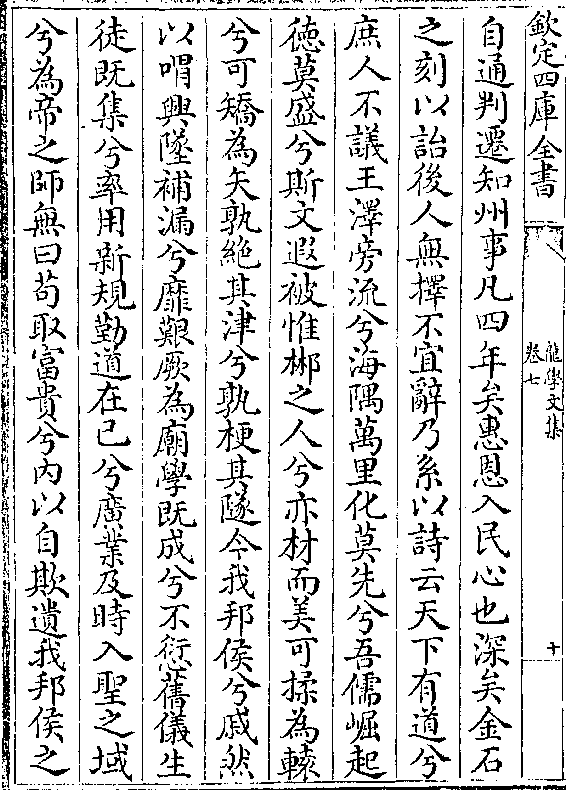 欽定四庫全書
龍學文集
卷七
十
自通判遷知州事凡四年矣惠恩入民心也深矣金石
之刻以詒後人無擇不宜辭乃系以詩云天下有道兮
庶人不議王澤旁流兮海隅萬里化莫先兮吾儒崛起
徳莫盛兮斯文遐被惟郴之人兮亦材而美可揉為轅
兮可矯為矢孰絶其津兮孰梗其隧今我邦侯兮戚然
以喟興墜補漏兮靡艱厥為廟學既成兮不愆舊儀生
徒既集兮率用新規勤道在已兮廣業及時入聖之域
兮為帝之師無曰苟取富貴兮内以自欺遺我邦侯之